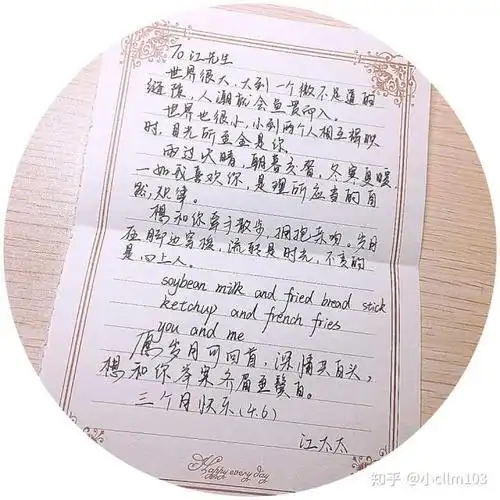 To 江先生
世界很大，大到一个微不足道的
缝隙，人潮就会鱼贯而入。
世界也很小，小到两个人相互辉映
时，目光所至全是你
雨过天晴，朝暮交替，冬寒夏暖
一如我喜欢你，是理所应当的自
然规律。
想和你牵手散步，拥抱亲吻。岁月
在脚边穿梭，流转是时光，不变的
是心上人。
soybean milk and fried bread stick
ketchup and french fries
you and me
愿岁月可回首，深情共白头，
想和你举案齐眉至鬓白。
三个月快乐(4.6)
江太太
Happy every day
知乎 @小cllm103